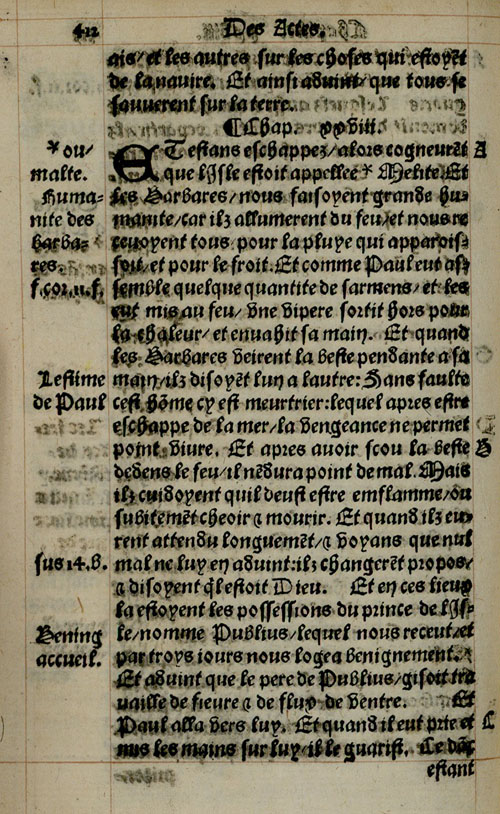 412
Des Actes.
ais/ et les autres sur les choses qui estoyēt
de la nauire. Et ainsi aduint/ que tous se
sauuerent sur la terre.
¶ Chap. xxviii.
ET estans eschappez/ alors cogneurēt A
que lIsle estoit appellee * Melite. Et
les Barbares/ nous faisoyent grande hu-
manite/ car ilz allumerent du feu/ et nous re
ceuoyent tous pour la pluye qui apparois-
soit/ et pour le froit. Et comme Paul eut as-
semble quelque quantite de sarmens/ et les
eut mis au feu/ vne vipere sortit hors pour
la chaleur/ et enuahit sa main. Et quand
les Barbares veirent la beste pendante a sa
main/ ilz disoyēt lun a lautre: Sans faulte
cest hōme cy est meurtrier: lequel apres estre
eschappe de la mer/ la vengeance ne permet
point viure. Et apres auoir scou la beste B
dedens le feu/ il nēdura point de mal. Mais
ilz cuidoyent quil deust estre emflamme/ ou
subitemēt cheoir ⁊ mourir. Et quand ilz eu-
rent attendu longuemēt/ ⁊ voyans que nul
mal ne luy en aduint: ilz changerēt propos/
⁊ disoyent ql estoit Dieu. Et en ces lieux
la estoyent les possessions du prince de lIs-
le/ nomme Publius/ lequel nous receut/ et
par troys iours nous logea benignement.
Et aduint que le pere de Publius/ gisoit tra
uaille de fieure ⁊ de flux de ventre. Et
Paul alla vers luy. Et quand il eut prie et C
mis les mains sur luy/ il le guarist. Ce dāc
estant
* ou/
malte.
Huma-
nite des
barba-
res.
f.cor.ii.f.
Lestime
de Paul
sus 14.b.
Bening
accueil.